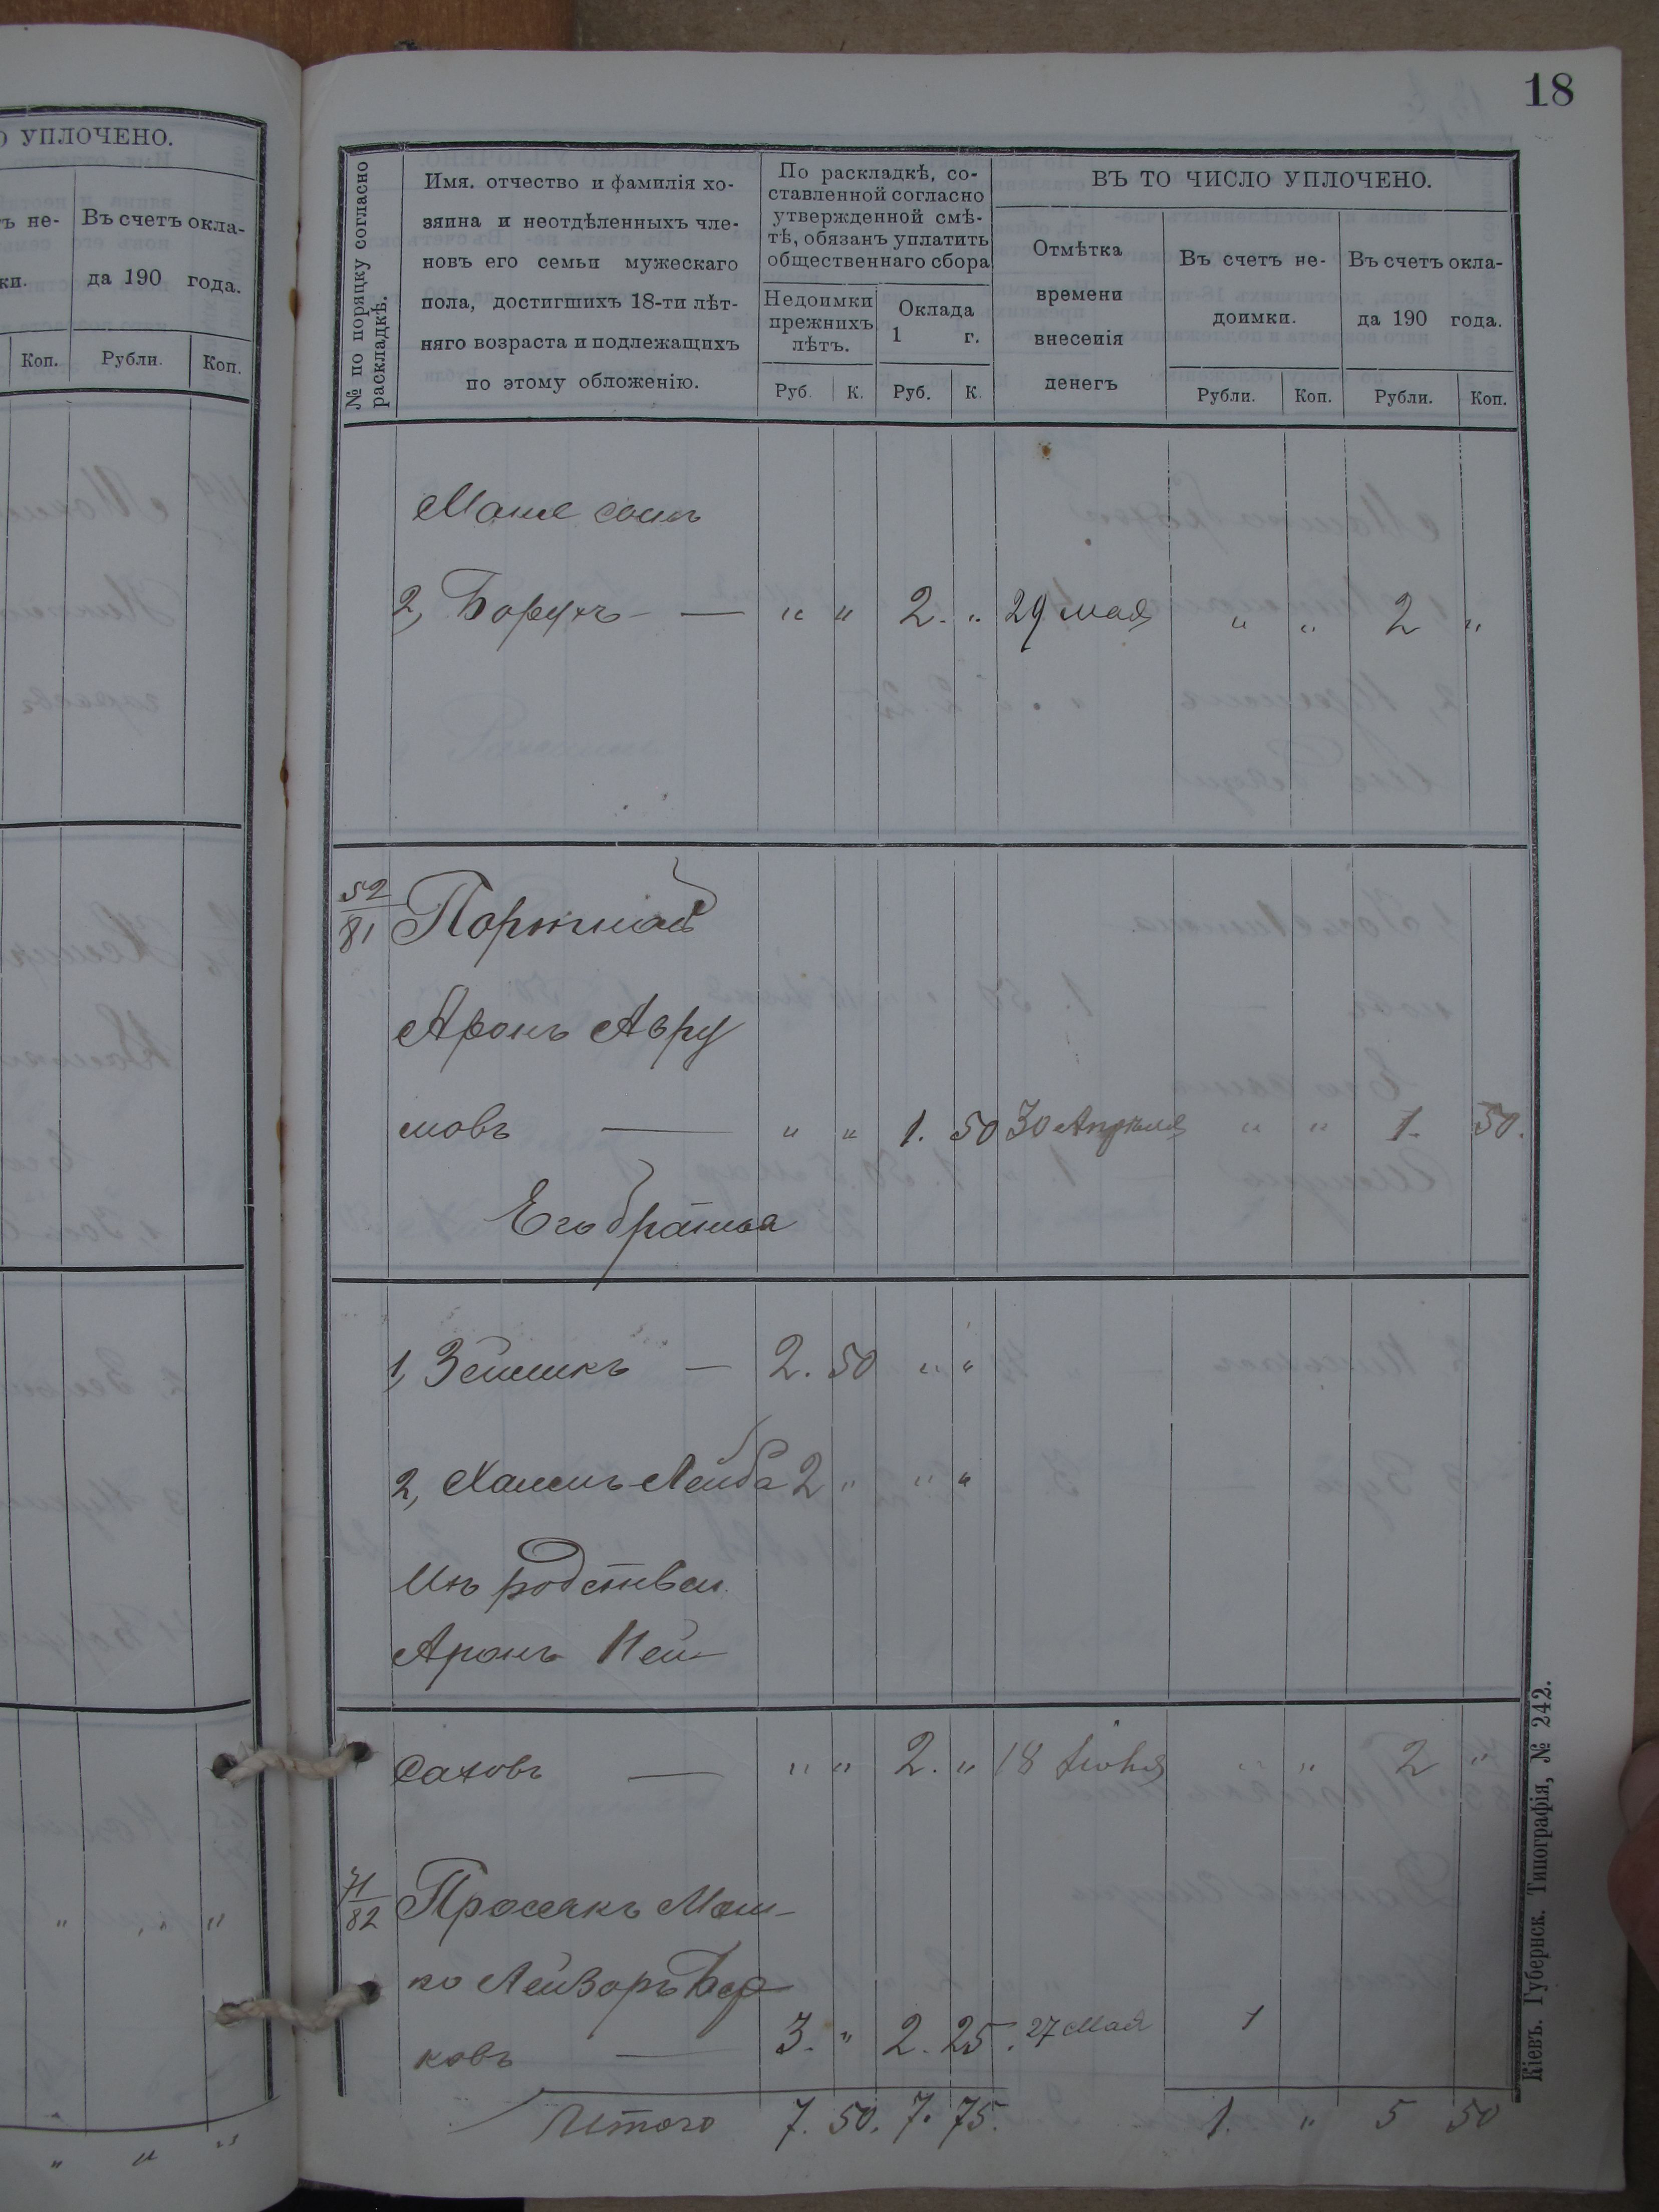 18
О УПЛОЧЕНО.
Въ счетъ окла-
да 190 года.
Коп. Рубли. Коп.
№ по поряцку согласно
раскладкѣ.
Имя. отчество и фамилія хо-
зяина и неотдѣленныхъ чле-
новъ его семьи мужескаго
пола, достигшихъ 18-ти лѣт-
няго возраста и подлежащихъ
по этому обложенію.
По раскладкѣ, со-
ставленной согласно
утвержденной смѣ-
тѣ, обязанъ уплатить
общественнаго сбора
Недоимки
прежнихъ
лѣтъ.
Оклада
1 г.
Руб. К. Руб. К.
ВЪ ТО ЧИСЛО УПЛОЧЕНО.
Отмѣтка
времени
внесенія
денегъ
Въ счетъ не-
доимки.
Рубли. Коп.
Въ счетъ окла-
да 190 года.
Рубли. Коп.
2, Борухъ — " " 2. " 29 мая " " 2 "
52/81
Аронъ Авру
мовъ — " " 1. 50 30 Апрѣля " " 1. 50.
Его братья
1, Зейликъ — 2. 50 " "
2, Хаимъ-Лейба 2 " " "
Ихъ родствен.
Аронъ Пей-
саховъ — " " 2. " 18 Июня " " 2 "
71/82 Просякъ Мош-
ко Лейзоръ Бер-
ковъ — 3. " 2. 25. 27 Мая 1
Итого 7. 50. 7. 75. 1. " 5 50
Кіевъ. Губернск. Типографія, № 242.